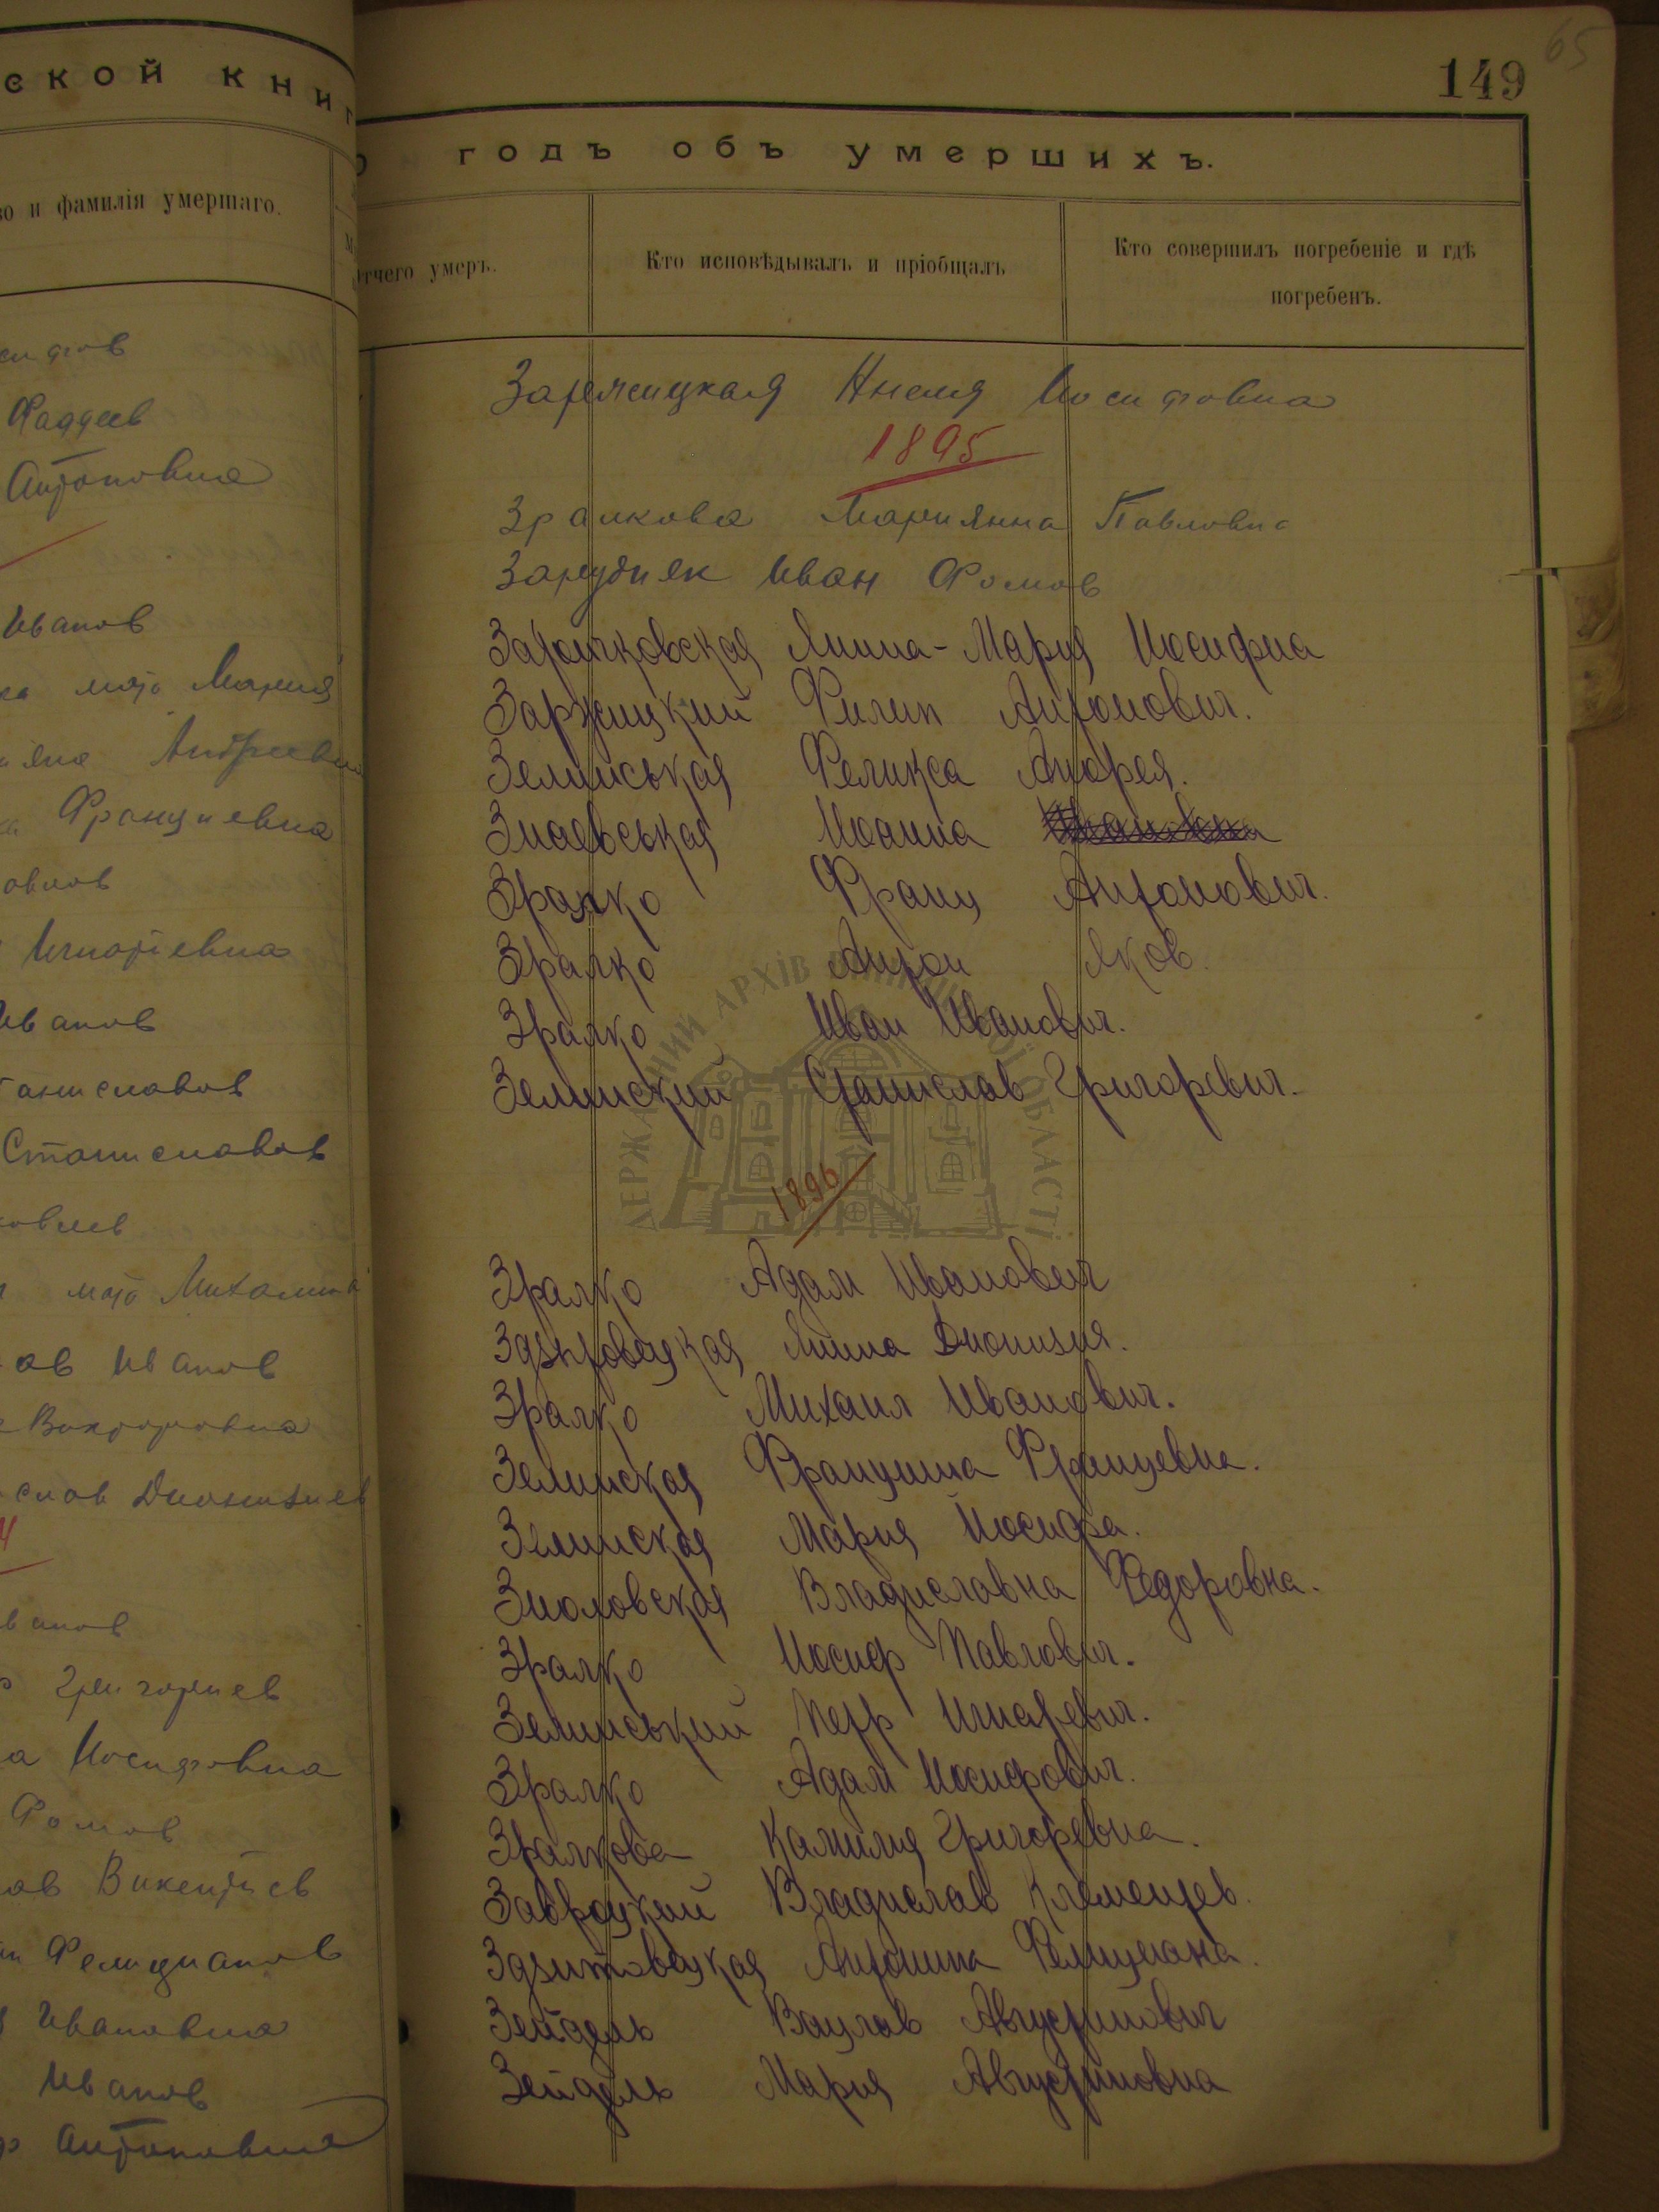 ской книг
во и фамилія умершаго.
Фаддеев
Антоновна
Иванов
мат Мария
Андреевна
Францевна
Игнатіевна
Иванов
Станиславов
Станиславов
мат Михалина
Иванов
Викторовна
Дионизиев
Григориев
Иосифовна
Фомов
Викентиев
Фелицианов
Ивановна
Иванов
Антоновна
65
149
годъ объ умершихъ.
отчего умеръ.
Кто исповѣдывалъ и пріобщалъ
Кто совершилъ погребеніе и гдѣ
погребенъ.
Заржицкая Анеля Иосифовна
1895
Зралкова Мариянна Павловна
Зарудняк Иван Фомов
Анна-Мария Иосифна
Заржицкий Филип Антонович.
Зелинськая Феликса Андрея.
Знаевськая Иоанна
Зралко Франц Антонович.
Зралко Антон Яков.
Зралко Иван Иванович.
Зелинский Станислав Григоревич.
ДЕРЖАВНИЙ АРХІВ ВІННИЦЬКОЇ ОБЛАСТІ
1896
Зралко Адам Иванович
Здзитовецкая Анна Дионизия.
Зралко Михаил Иванович.
Зелинская Францишка Францевна.
Зелинская Мария Иосифа.
Владиславна Федоровна.
Зралко Иосиф Павлович.
Зелинський Петр Игнатевич.
Зралко Адам Иосифович.
Зралкова Камилия Григоревна.
Завроцкий Владислав Клементев.
Здзитовецкая Антонина Фелициана.
Зейдель Вацлав Августинович
Зейдель Мария Августиновна